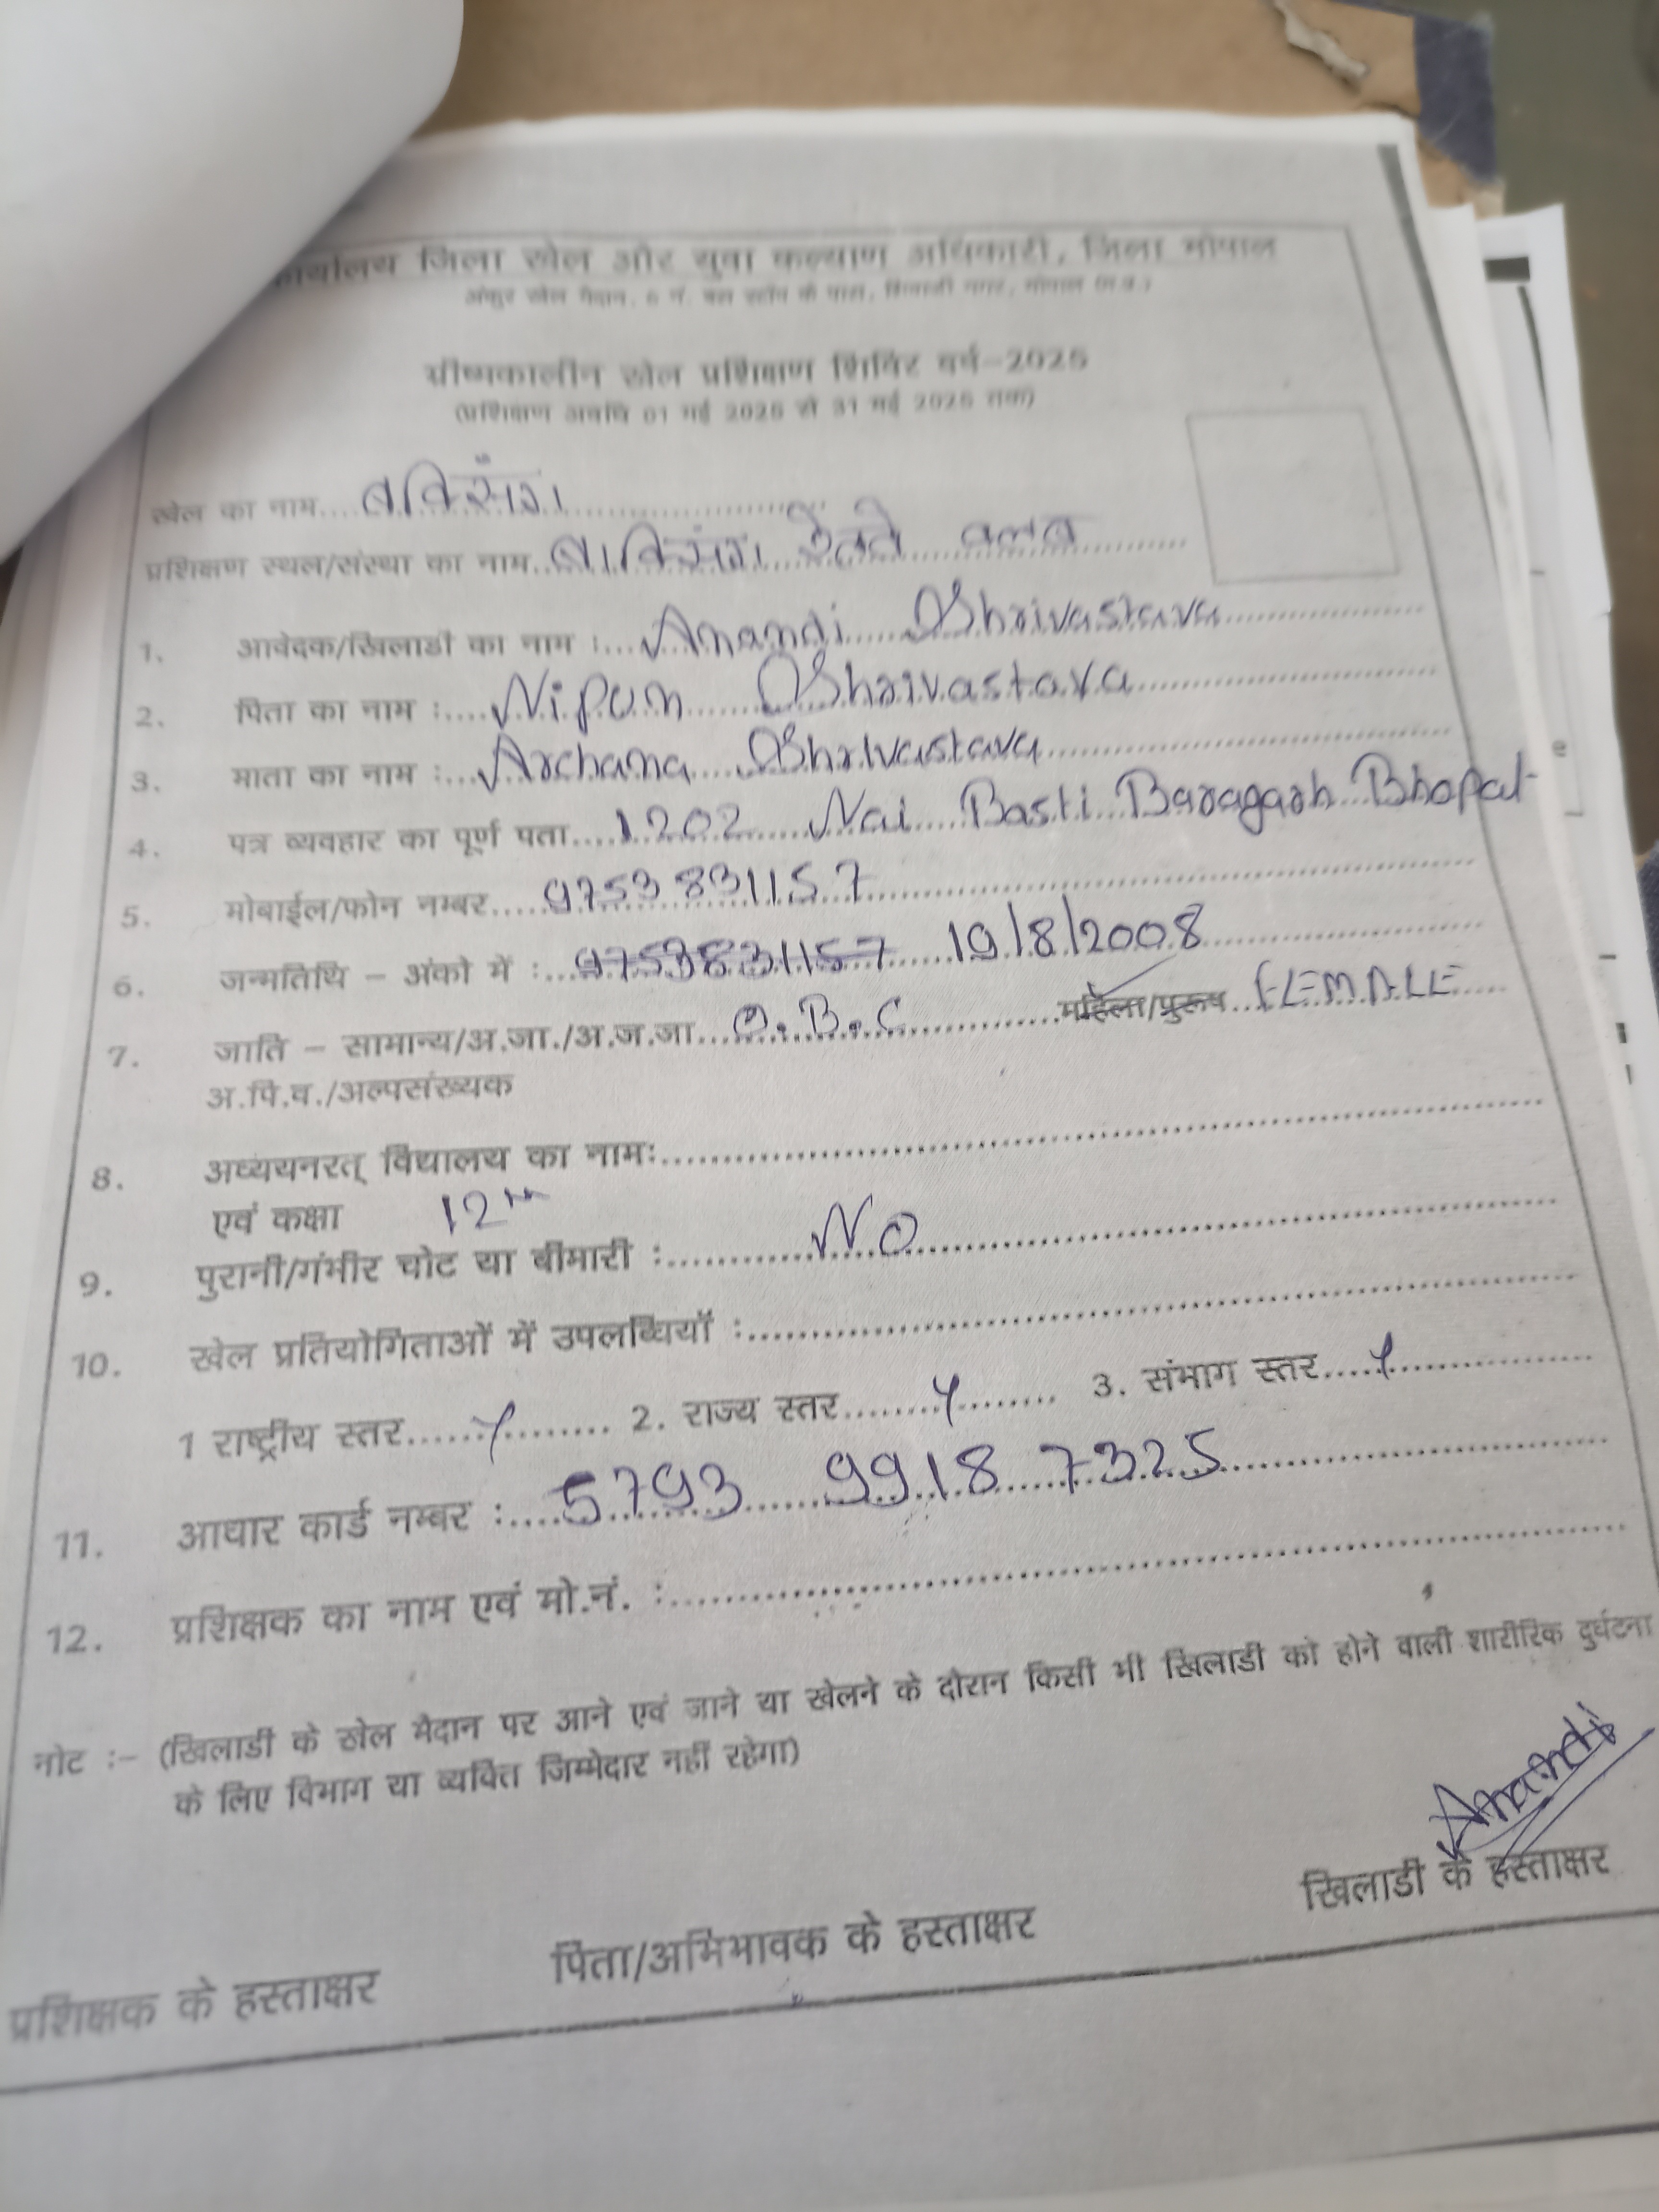 कार्यालय जिला खेल और युवा कल्याण अधिकारी, जिला भोपाल
अंकुर खेल मैदान, 6 नं. बस स्टॉप के पास, शिवाजी नगर, भोपाल (म.प्र.)
ग्रीष्मकालीन खेल प्रशिक्षण शिविर वर्ष–2025
(प्रशिक्षण अवधि 01 मई 2025 से 31 मई 2025 तक)
खेल का नाम.... बॉक्सिंग
प्रशिक्षण स्थल/संस्था का नाम.. बाक्सिंग क्लब
1. आवेदक/खिलाडी का नाम :... Anandi Shrivastava
2. पिता का नाम :.... Nipun Shrivastava
3. माता का नाम :... Archana Shrivastava
4. पत्र व्यवहार का पूर्ण पता.... 1202 Nai Basti Baragarh Bhopal
5. मोबाईल/फोन नम्बर..... 9753831157
6. जन्मतिथि – अंको में :... 9753831157 19/8/2008
7. जाति – सामान्य/अ.जा./अ.ज.जा... O.B.C महिला/पुरूष... FEMALE
अ.पि.व./अल्पसंख्यक
8. अध्ययनरत् विद्यालय का नामः
एवं कक्षा 12th
9. पुरानी/गंभीर चोट या बीमारी : NO
10. खेल प्रतियोगिताओं में उपलब्धियाँ :
1 राष्ट्रीय स्तर...... 2. राज्य स्तर...... 3. संभाग स्तर.....
11. आधार कार्ड नम्बर :.... 5793 9918 7325
12. प्रशिक्षक का नाम एवं मो.नं. :
नोट :– (खिलाडी के खेल मैदान पर आने एवं जाने या खेलने के दौरान किसी भी खिलाडी को होने वाली शारीरिक दुर्घटना
के लिए विभाग या व्यक्ति जिम्मेदार नहीं रहेगा)
Anandi
प्रशिक्षक के हस्ताक्षर पिता/अभिभावक के हस्ताक्षर खिलाडी के हस्ताक्षर